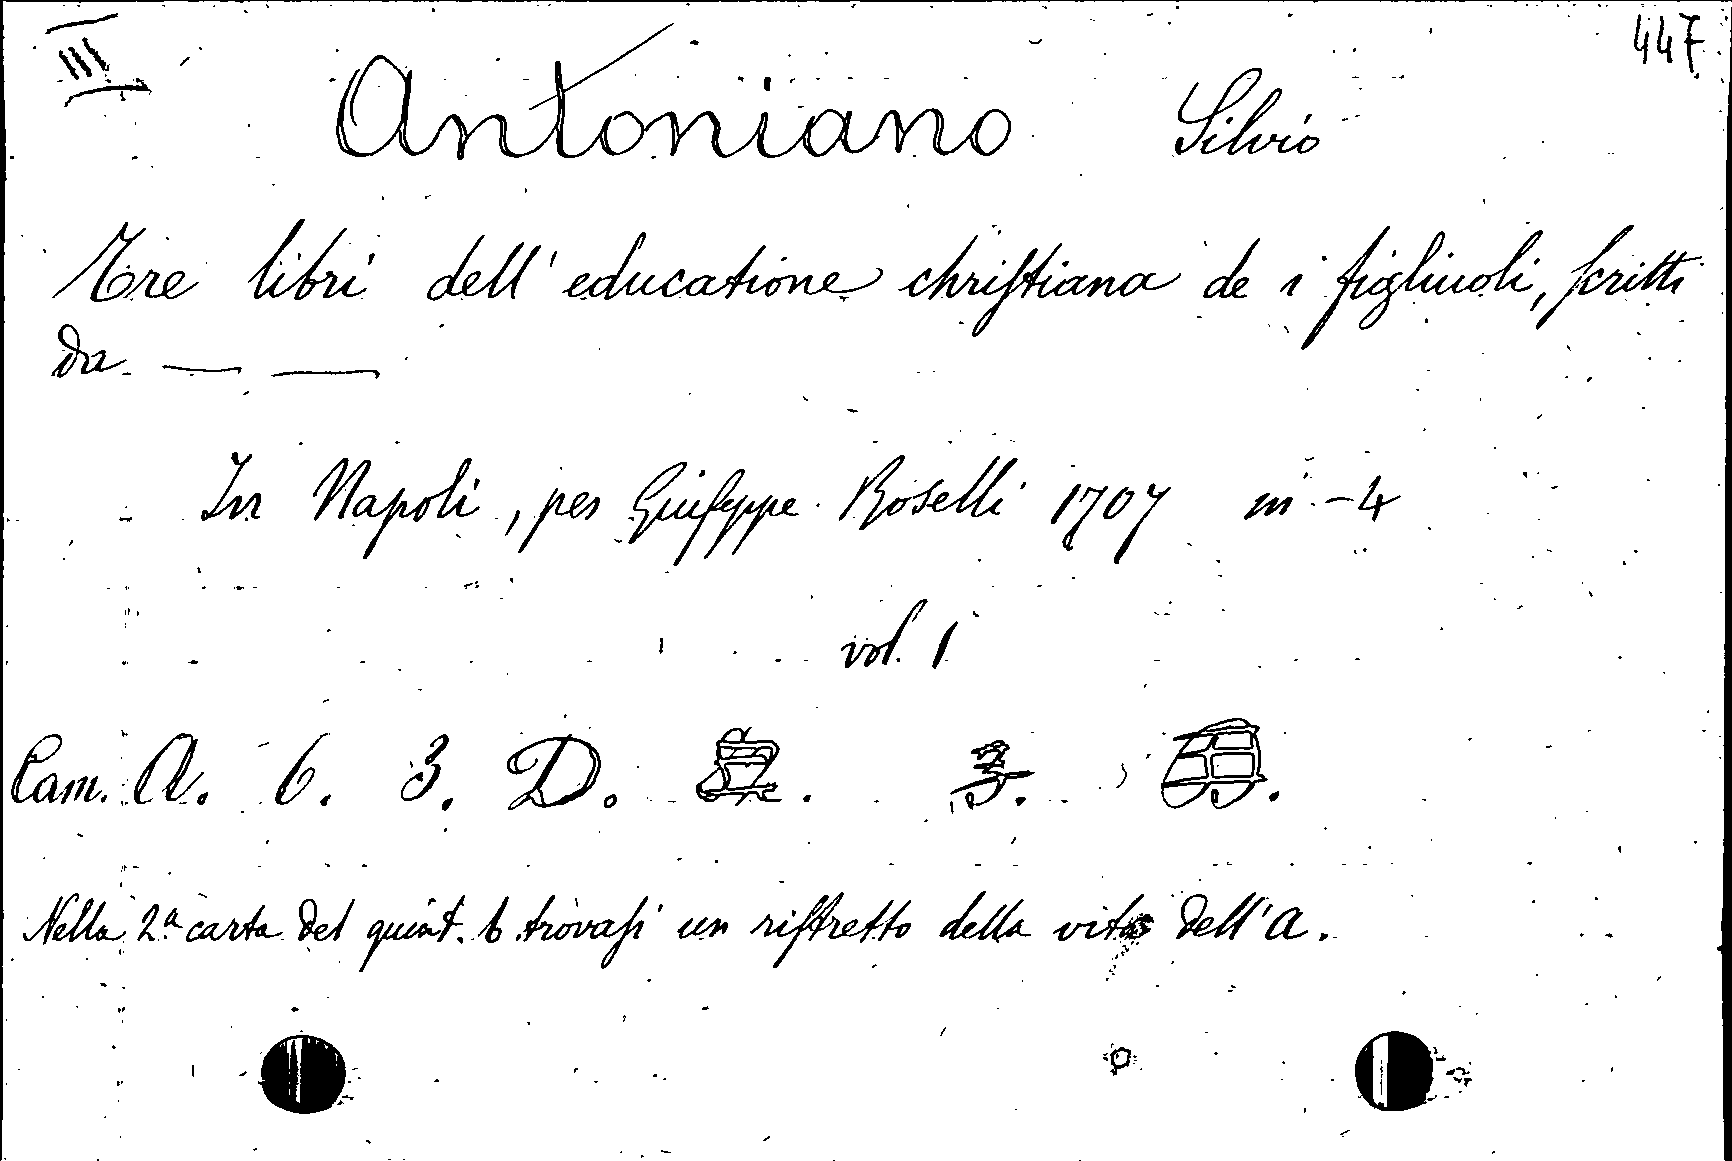 III 447
Antoniano Silvio
Tre libri dell' educatione chriſtiana de i figliuoli, ſcritti
da — —
In Napoli, per Giuſeppe Roselli 1707 in-4
vol. 1
Cam. A. 6. 3. D.
Nella 2ª carta del quint. b trovaſi un riſtretto della vita dell'A.